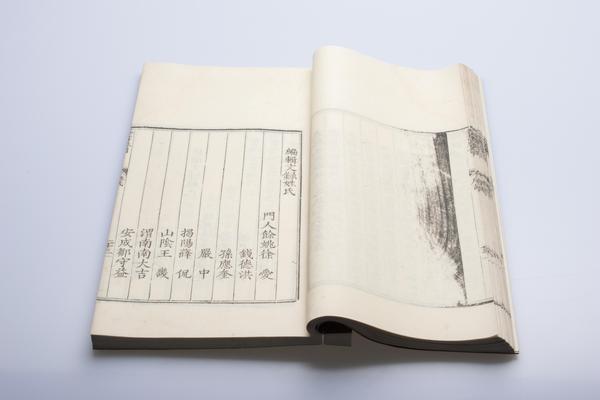 編輯文錄姓氏
門人餘姚徐愛
錢德洪
孫應奎
嚴中
揭陽薛侃
山陰王畿
渭南南大吉
安成鄒守益